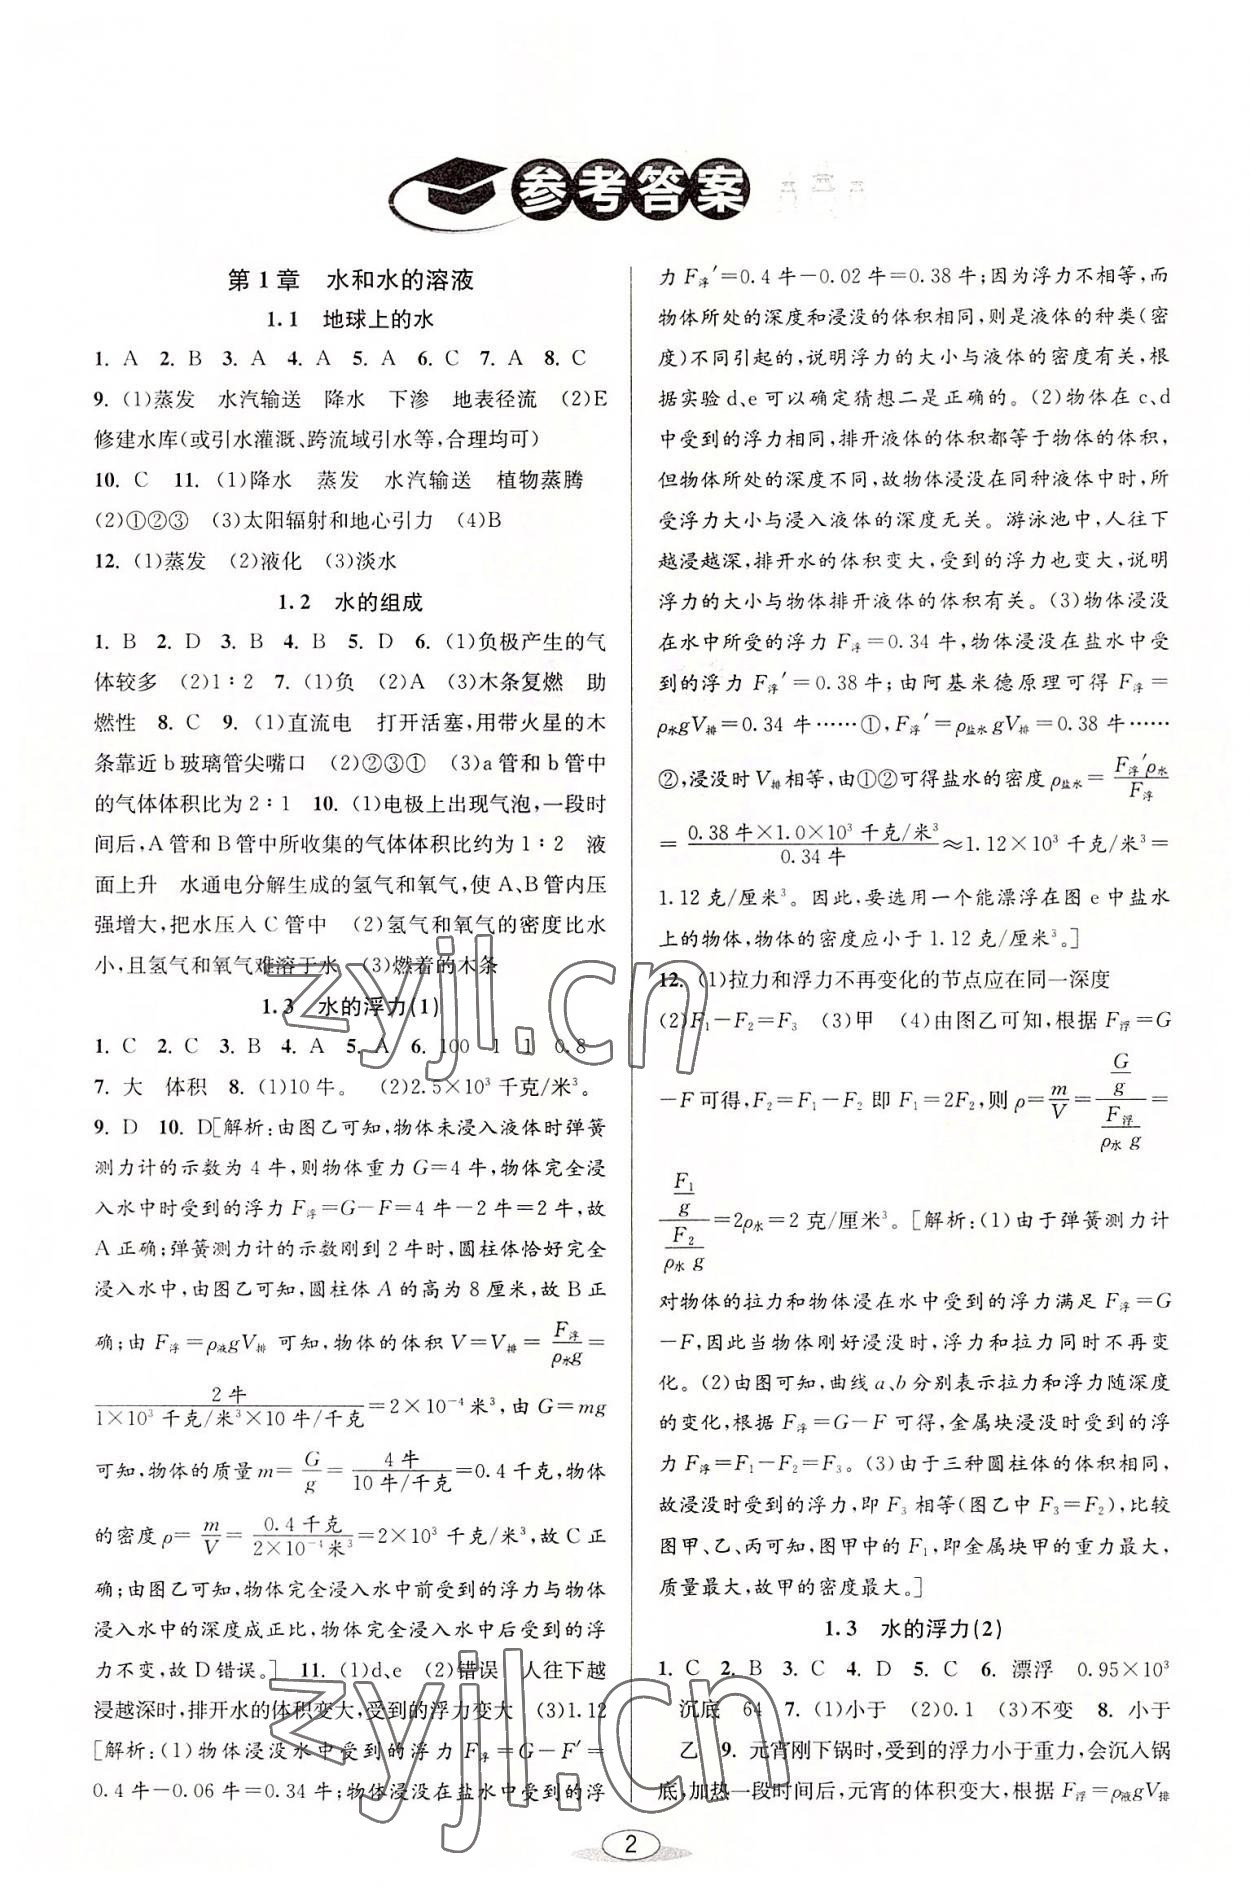 参考答案
第1章　水和水的溶液
1.1　地球上的水
1. A　2. B　3. A　4. A　5. A　6. C　7. A　8. C
9. (1)蒸发　水汽输送　降水　下渗　地表径流　(2)E
修建水库(或引水灌溉、跨流域引水等,合理均可)
10. C　11. (1)降水　蒸发　水汽输送　植物蒸腾
(2)①②③　(3)太阳辐射和地心引力　(4)B
12. (1)蒸发　(2)液化　(3)淡水
1.2　水的组成
1. B　2. D　3. B　4. B　5. D　6. (1)负极产生的气
体较多　(2)1∶2　7. (1)负　(2)A　(3)木条复燃　助
燃性　8. C　9. (1)直流电　打开活塞,用带火星的木
条靠近b玻璃管尖嘴口　(2)②③①　(3)a管和b管中
的气体体积比为2∶1　10. (1)电极上出现气泡,一段时
间后,A管和B管中所收集的气体体积比约为1∶2　液
面上升　水通电分解生成的氢气和氧气,使A、B管内压
强增大,把水压入C管中　(2)氢气和氧气的密度比水
小,且氢气和氧气难溶于水　(3)燃着的木条
1.3　水的浮力(1)
1. C　2. C　3. B　4. A　5. A　6. 100　1　1　0.8
7. 大　体积　8. (1)10牛。　(2)2.5×10³千克/米³。
9. D　10. D[解析:由图乙可知,物体未浸入液体时弹簧
测力计的示数为4牛,则物体重力G=4牛,物体完全浸
入水中时受到的浮力F浮=G-F=4牛-2牛=2牛,故
A正确;弹簧测力计的示数刚到2牛时,圆柱体恰好完全
浸入水中,由图乙可知,圆柱体A的高为8厘米,故B正
确;由F浮=ρ液gV排可知,物体的体积V=V排=F浮/ρ水g=
2牛/(1×10³千克/米³×10牛/千克)=2×10⁻⁴米³,由G=mg
可知,物体的质量m=G/g=4牛/(10牛/千克)=0.4千克,物体
的密度ρ=m/V=0.4千克/(2×10⁻⁴米³)=2×10³千克/米³,故C正
确;由图乙可知,物体完全浸入水中前受到的浮力与物体
浸入水中的深度成正比,物体完全浸入水中后受到的浮
力不变,故D错误。]　11. (1)d、e　(2)错误　人往下越
浸越深时,排开水的体积变大,受到的浮力变大　(3)1.12
[解析:(1)物体浸没水中受到的浮力F浮=G-F′=
0.4牛-0.06牛=0.34牛;物体浸没在盐水中受到的浮
力F浮′=0.4牛-0.02牛=0.38牛;因为浮力不相等,而
物体所处的深度和浸没的体积相同,则是液体的种类(密
度)不同引起的,说明浮力的大小与液体的密度有关,根
据实验d、e可以确定猜想二是正确的。(2)物体在c、d
中受到的浮力相同,排开液体的体积都等于物体的体积,
但物体所处的深度不同,故物体浸没在同种液体中时,所
受浮力大小与浸入液体的深度无关。游泳池中,人往下
越浸越深,排开水的体积变大,受到的浮力也变大,说明
浮力的大小与物体排开液体的体积有关。(3)物体浸没
在水中所受的浮力F浮=0.34牛,物体浸没在盐水中受
到的浮力F浮′=0.38牛;由阿基米德原理可得F浮=
ρ水gV排=0.34牛……①,F浮′=ρ盐水gV排=0.38牛……
②,浸没时V排相等,由①②可得盐水的密度ρ盐水=F浮′ρ水/F浮
=0.38牛×1.0×10³千克/米³/0.34牛≈1.12×10³千克/米³=
1.12克/厘米³。因此,要选用一个能漂浮在图e中盐水
上的物体,物体的密度应小于1.12克/厘米³。]
12. (1)拉力和浮力不再变化的节点应在同一深度
(2)F₁-F₂=F₃　(3)甲　(4)由图乙可知,根据F浮=G
-F可得,F₂=F₁-F₂即F₁=2F₂,则ρ=m/V=(G/g)/(F浮/ρ水g)=
(F₁/g)/(F₂/ρ水g)=2ρ水=2克/厘米³。[解析:(1)由于弹簧测力计
对物体的拉力和物体浸在水中受到的浮力满足F浮=G
-F,因此当物体刚好浸没时,浮力和拉力同时不再变
化。(2)由图可知,曲线a、b分别表示拉力和浮力随深度
的变化,根据F浮=G-F可得,金属块浸没时受到的浮
力F浮=F₁-F₂=F₃。(3)由于三种圆柱体的体积相同,
故浸没时受到的浮力,即F₃相等(图乙中F₃=F₂),比较
图甲、乙、丙可知,图甲中的F₁,即金属块甲的重力最大,
质量最大,故甲的密度最大。]
1.3　水的浮力(2)
1. C　2. B　3. C　4. D　5. C　6. 漂浮　0.95×10³
沉底　64　7. (1)小于　(2)0.1　(3)不变　8. 小于
乙　9. 元宵刚下锅时,受到的浮力小于重力,会沉入锅
底,加热一段时间后,元宵的体积变大,根据F浮=ρ液gV排
2
zyjl.cn
zyjl.cn